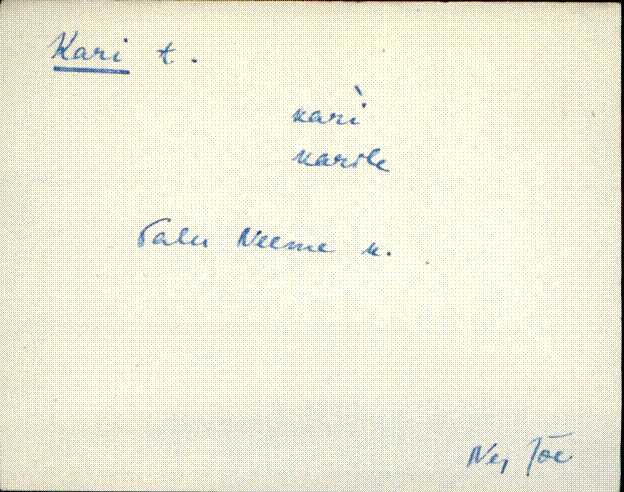 Kari t.
kari̇̀
karile
Talu Neeme k.
Nej Jõe